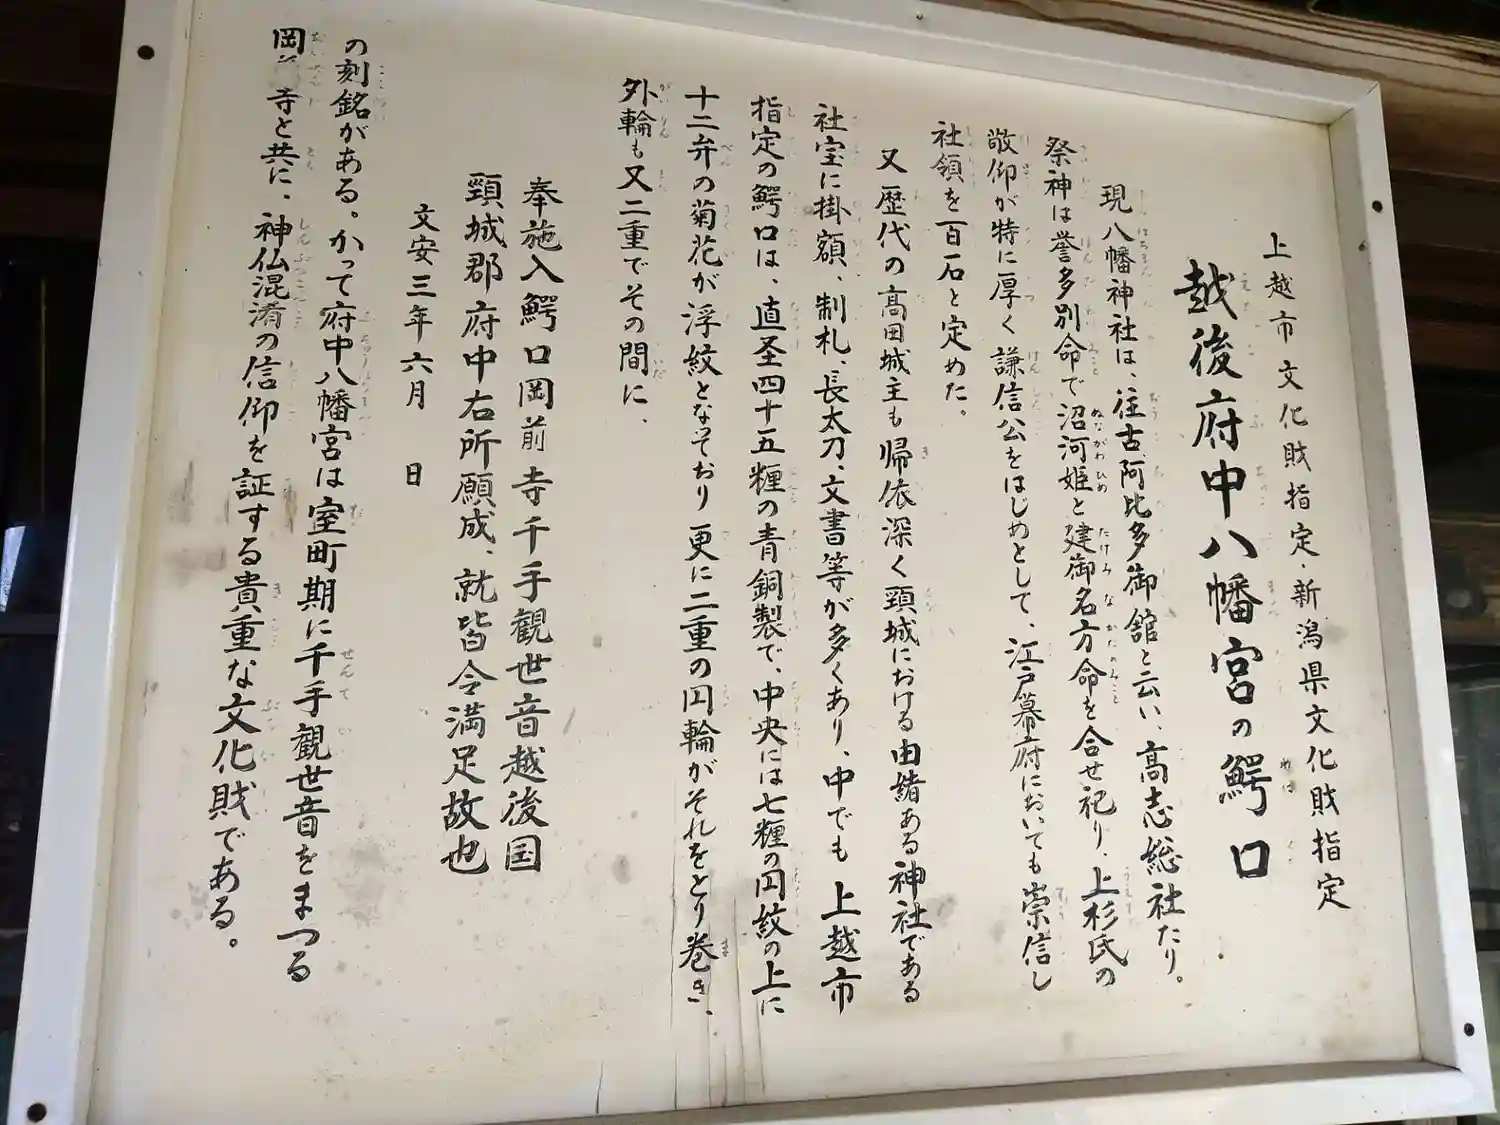 上越市文化財指定・新潟県文化財指定
越後府中八幡宮の鰐口
現八幡神社は、往古阿比多御舘と云い、高志総社たり。
祭神は誉多別命で沼河姫と建御名方命を合せ祀り、上杉氏の
敬仰が特に厚く謙信公をはじめとして、江戸幕府においても崇信し
社領を百石と定めた。
又歴代の高田城主も帰依深く頸城における由緒ある神社である
社宝に掛額、制札、長太刀、文書等が多くあり、中でも上越市
指定の鰐口は、直圣四十五糎の青銅製で、中央には七糎の円紋の上に
十二弁の菊花が浮紋となっており更に二重の円輪がそれをとり巻き、
外輪も又二重でその間に、
奉施入鰐口岡前寺千手観世音越後国
頸城郡府中右所願成、就皆令満足故也
文安三年六月 日
の刻銘がある。かって府中八幡宮は室町期に千手観世音をまつる
岡寺と共に、神仏混淆の信仰を証する貴重な文化財である。